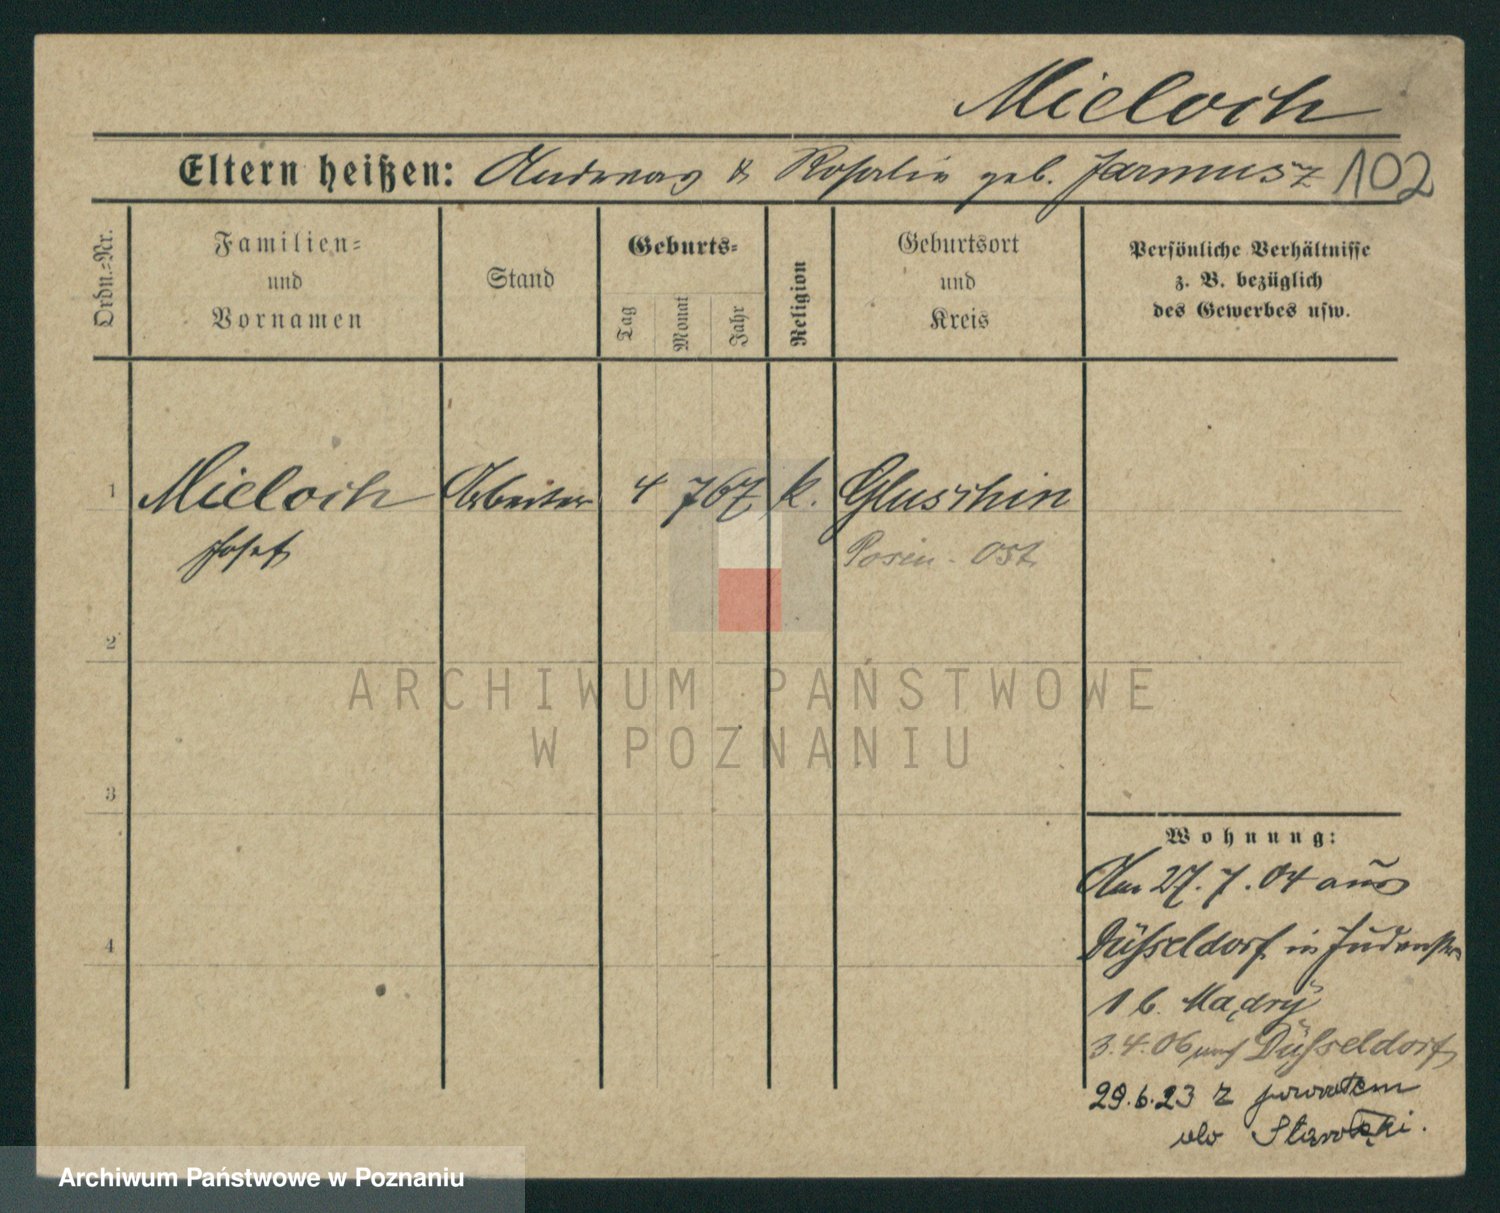 Mieloch
Eltern heißen: Andreas & Rosalie geb. Jarmusz 102
Ordn.=Nr.
Familien=
und
Vornamen
Stand
Geburts=
Tag
Monat
Jahr
Religion
Geburtsort
und
Kreis
Persönliche Verhältnisse
z. B. bezüglich
des Gewerbes usw.
1 Mieloch Arbeiter 4 7 67 k. Gluschin
Josef Posen-Ost
2
3
4
Wohnung:
Am 27.7.04 aus
Düsseldorf in Judenstr
1 b. Mądry
3.4.06 nach Düsseldorf
29.6.23 z powrotem
do Starołęki.
ARCHIWUM PAŃSTWOWE
W POZNANIU
Archiwum Państwowe w Poznaniu